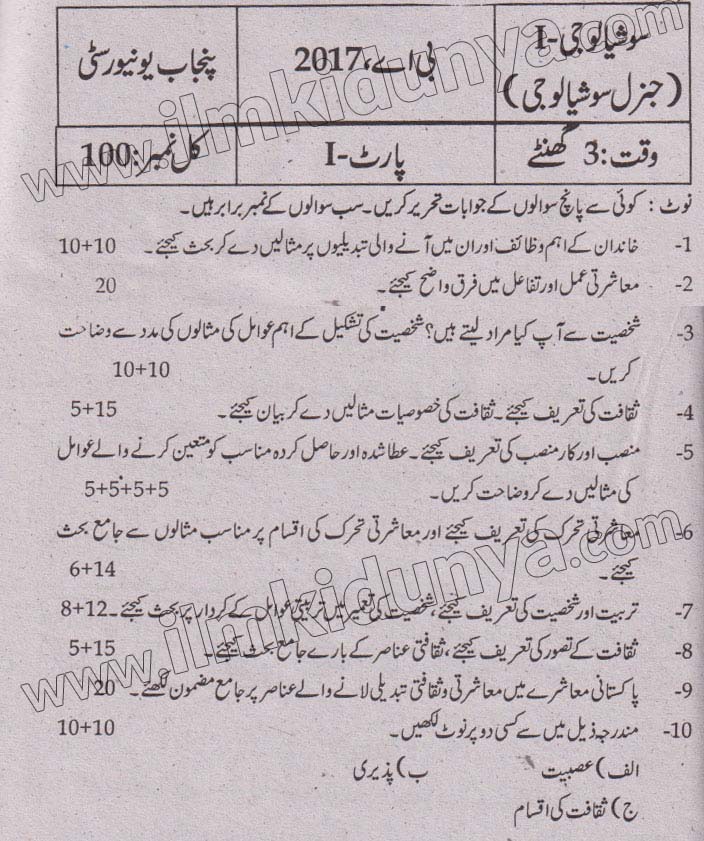 سوشیالوجی-I بی اے، 2017 پنجاب یونیورسٹی
(جنرل سوشیالوجی)
وقت: 3 گھنٹے پارٹ-I کل نمبر: 100
نوٹ: کوئی سے پانچ سوالوں کے جوابات تحریر کریں۔ سب سوالوں کے نمبر برابر ہیں۔
1- خاندان کے اہم وظائف اور ان میں آنے والی تبدیلیوں پر مثالیں دے کر بحث کیجئے۔ 10+10
2- معاشرتی عمل اور تفاعل میں فرق واضح کیجئے۔ 20
3- شخصیت سے آپ کیا مراد لیتے ہیں؟ شخصیت کی تشکیل کے اہم عوامل کی مثالوں کی مدد سے وضاحت
کریں۔ 10+10
4- ثقافت کی تعریف کیجئے۔ ثقافت کی خصوصیات مثالیں دے کر بیان کیجئے۔ 5+15
5- منصب اور کار منصب کی تعریف کیجئے۔ عطا شدہ اور حاصل کردہ مناسب کو متعین کرنے والے عوامل
کی مثالیں دے کر وضاحت کریں۔ 5+5+5+5
6- معاشرتی تحرک کی تعریف کیجئے اور معاشرتی تحرک کی اقسام پر مناسب مثالوں سے جامع بحث
کیجئے۔ 6+14
7- تربیت اور شخصیت کی تعریف کیجئے، شخصیت کی تعمیر میں تربیتی عوامل کے کردار پر بحث کیجئے۔ 8+12
8- ثقافت کے تصور کی تعریف کیجئے، ثقافتی عناصر کے بارے جامع بحث کیجئے۔ 5+15
9- پاکستانی معاشرے میں معاشرتی و ثقافتی تبدیلی لانے والے عناصر پر جامع مضمون لکھئے۔ 20
10- مندرجہ ذیل میں سے کسی دو پر نوٹ لکھیں۔ 10+10
الف) عصبیت ب) پذیری
ج) ثقافت کی اقسام
www.ilmkidunya.com
www.ilmkidunya.com